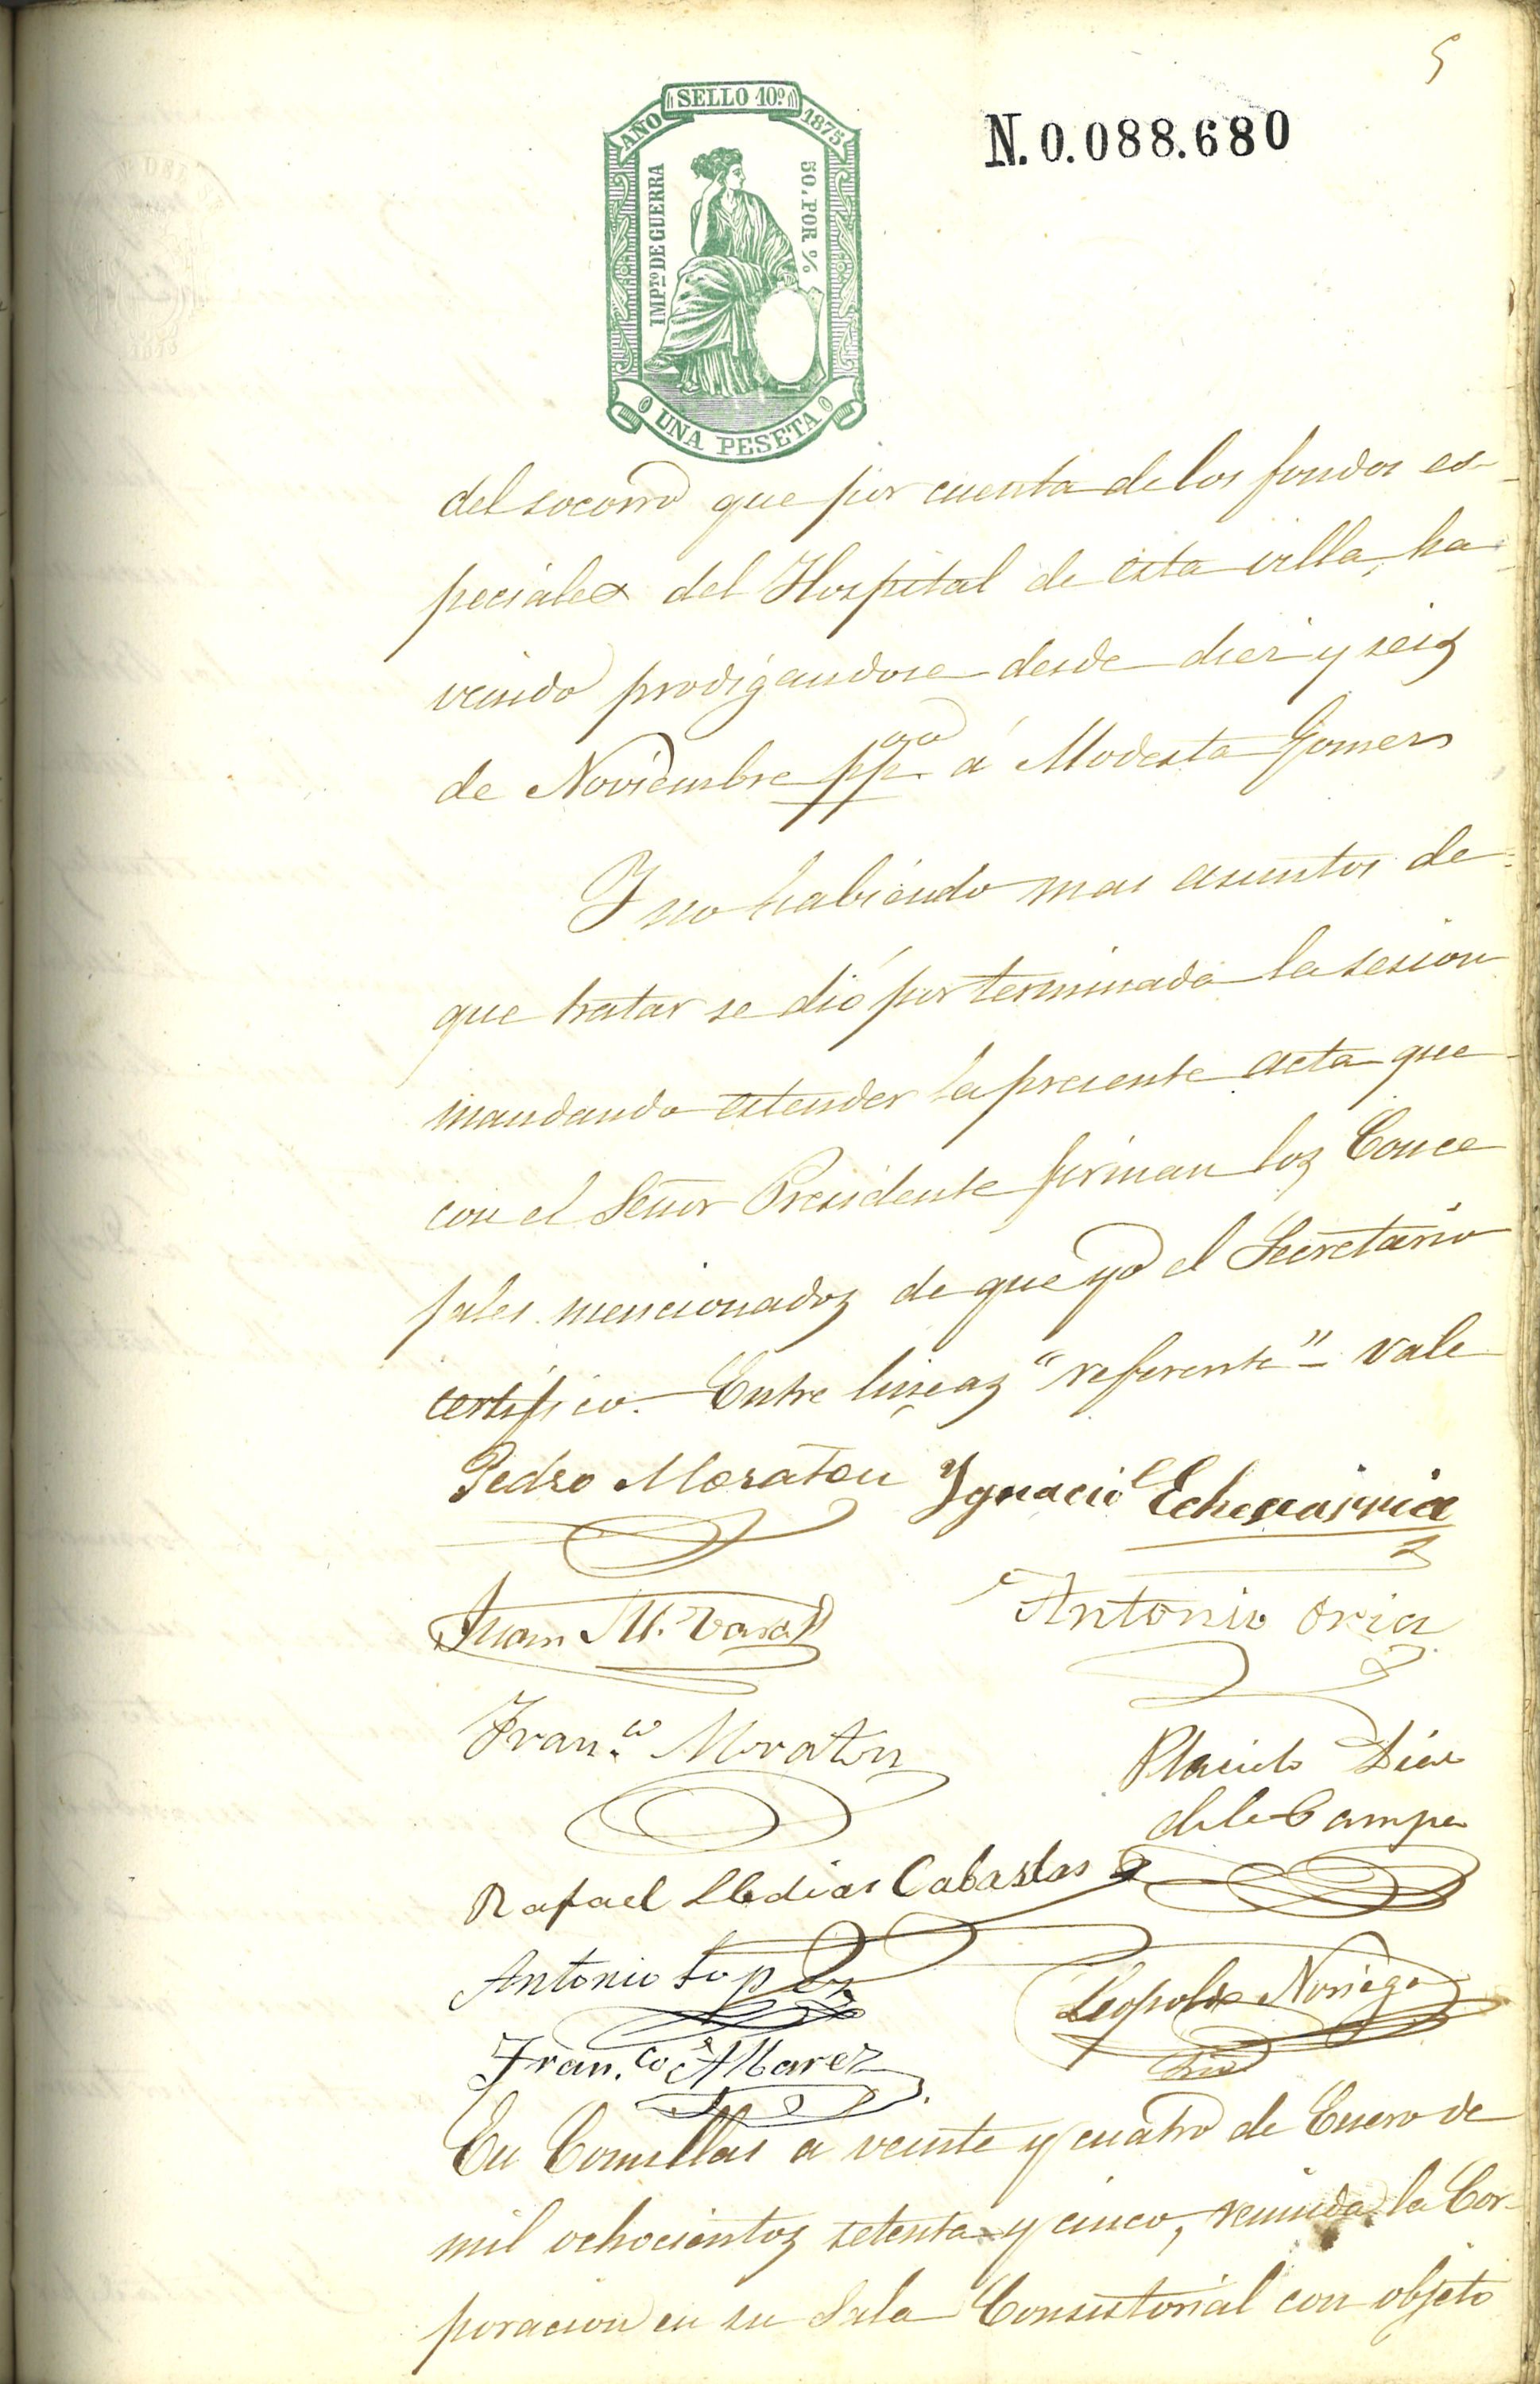 5
SELLO 10º
AÑO 1875
IMPTO DE GUERRA
50. POR %
UNA PESETA
N.0.088.680
del socorro que por cuenta de los fondos es-
peciales del Hospital de esta villa, ha
venido prodigandose desde diez y seis
de Noviembre ppᵈᵒ á Modesta Gomez
Y no habiendo mas asuntos de
que tratar se dió por terminada la sesion
mandando estender la presente acta que
con el Señor Presidente firman los Conce
jales mencionados de que yo el Secretario
certifico. Entre lineas "referente" - vale
Pedro Moraton Ygnacio Echevarria
Juan M. Antonio Oria
Fran.co Moraton
Placido Diaz
de la Campa
Rafael Cabastas
Antonio Lopez
Leopoldo Noriega
Fran.co Alvarez
En Comillas a veinte y cuatro de Enero de
mil ochocientos setenta y cinco, reunida la Cor-
poracion en su Sala Consistorial con objeto